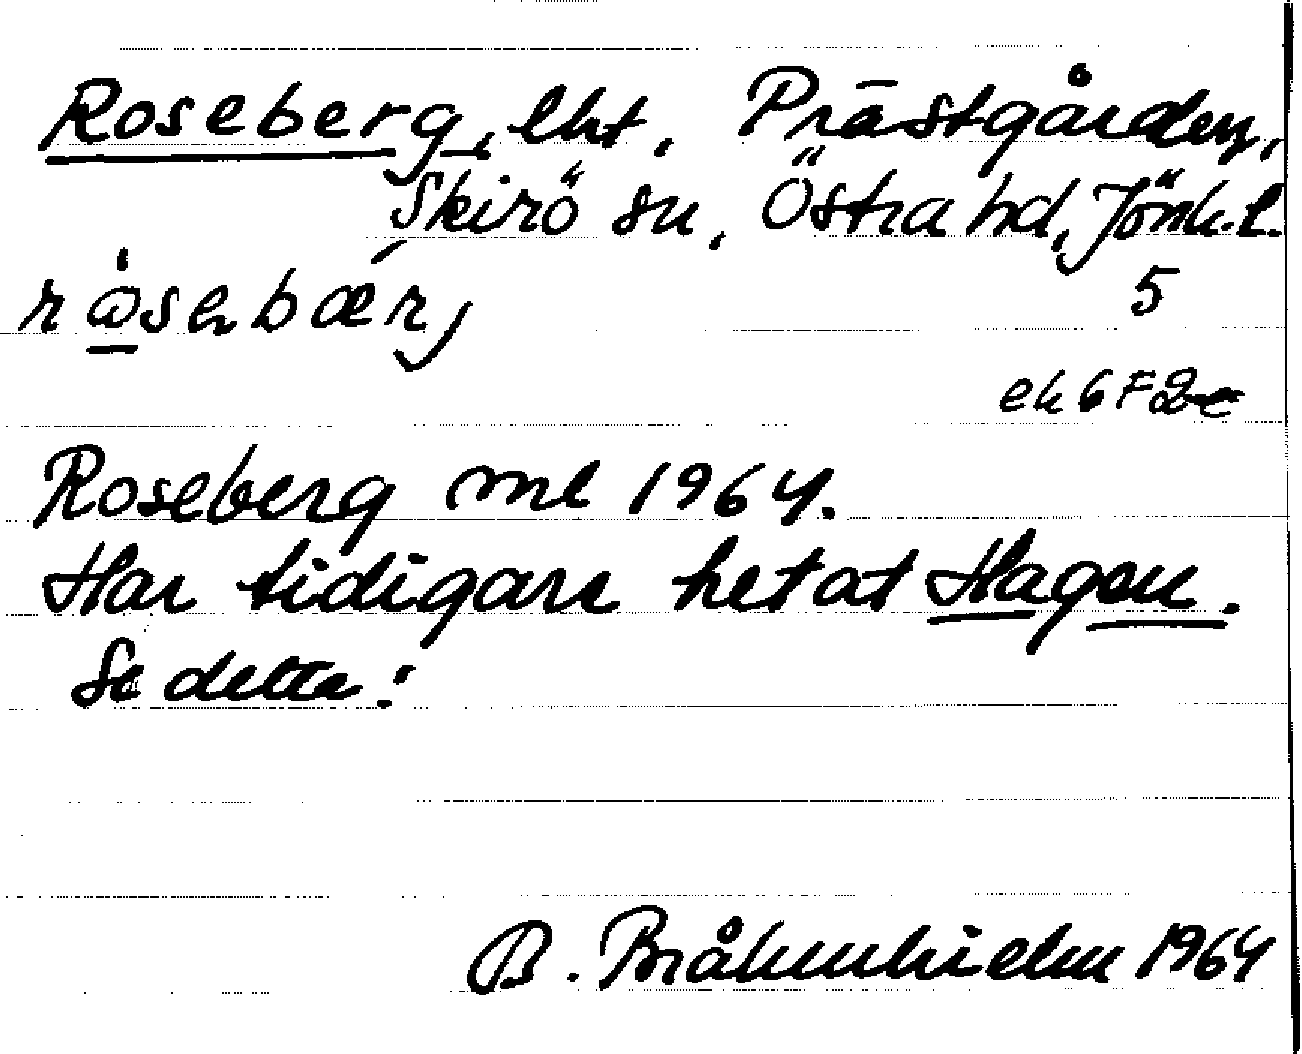 Roseberg, lht, Prästgården,
Skirö sn, Östra hd, Jönk. l.
5
ek 6 F 2 e
Roseberg ml 1964.
Har tidigare hetat Hagen.
Se detta!
B. Bråkenhielm 1964